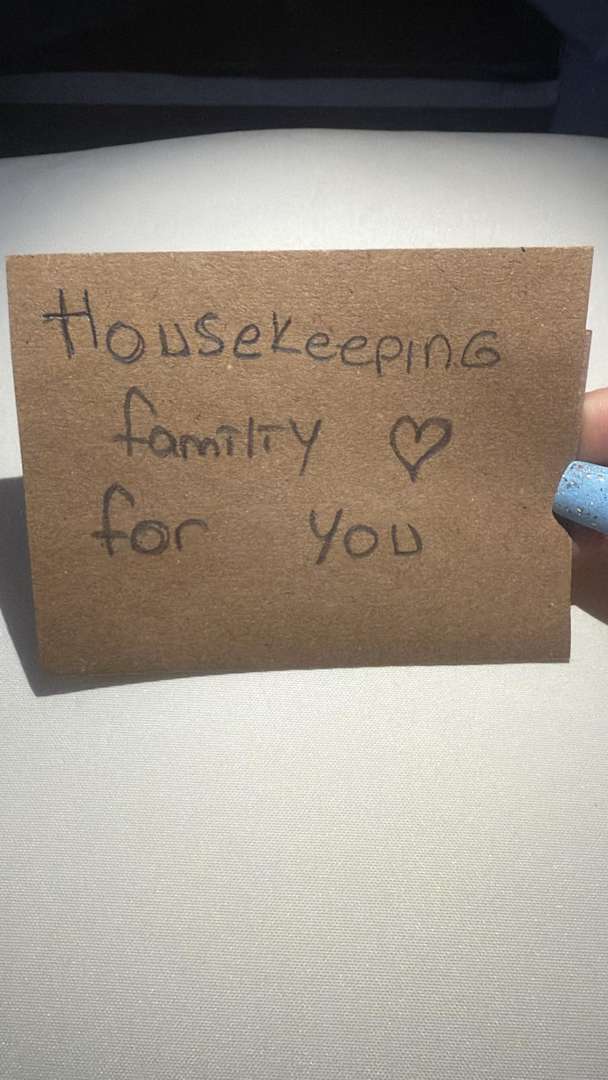 Housekeeping
familiy ♡
for you